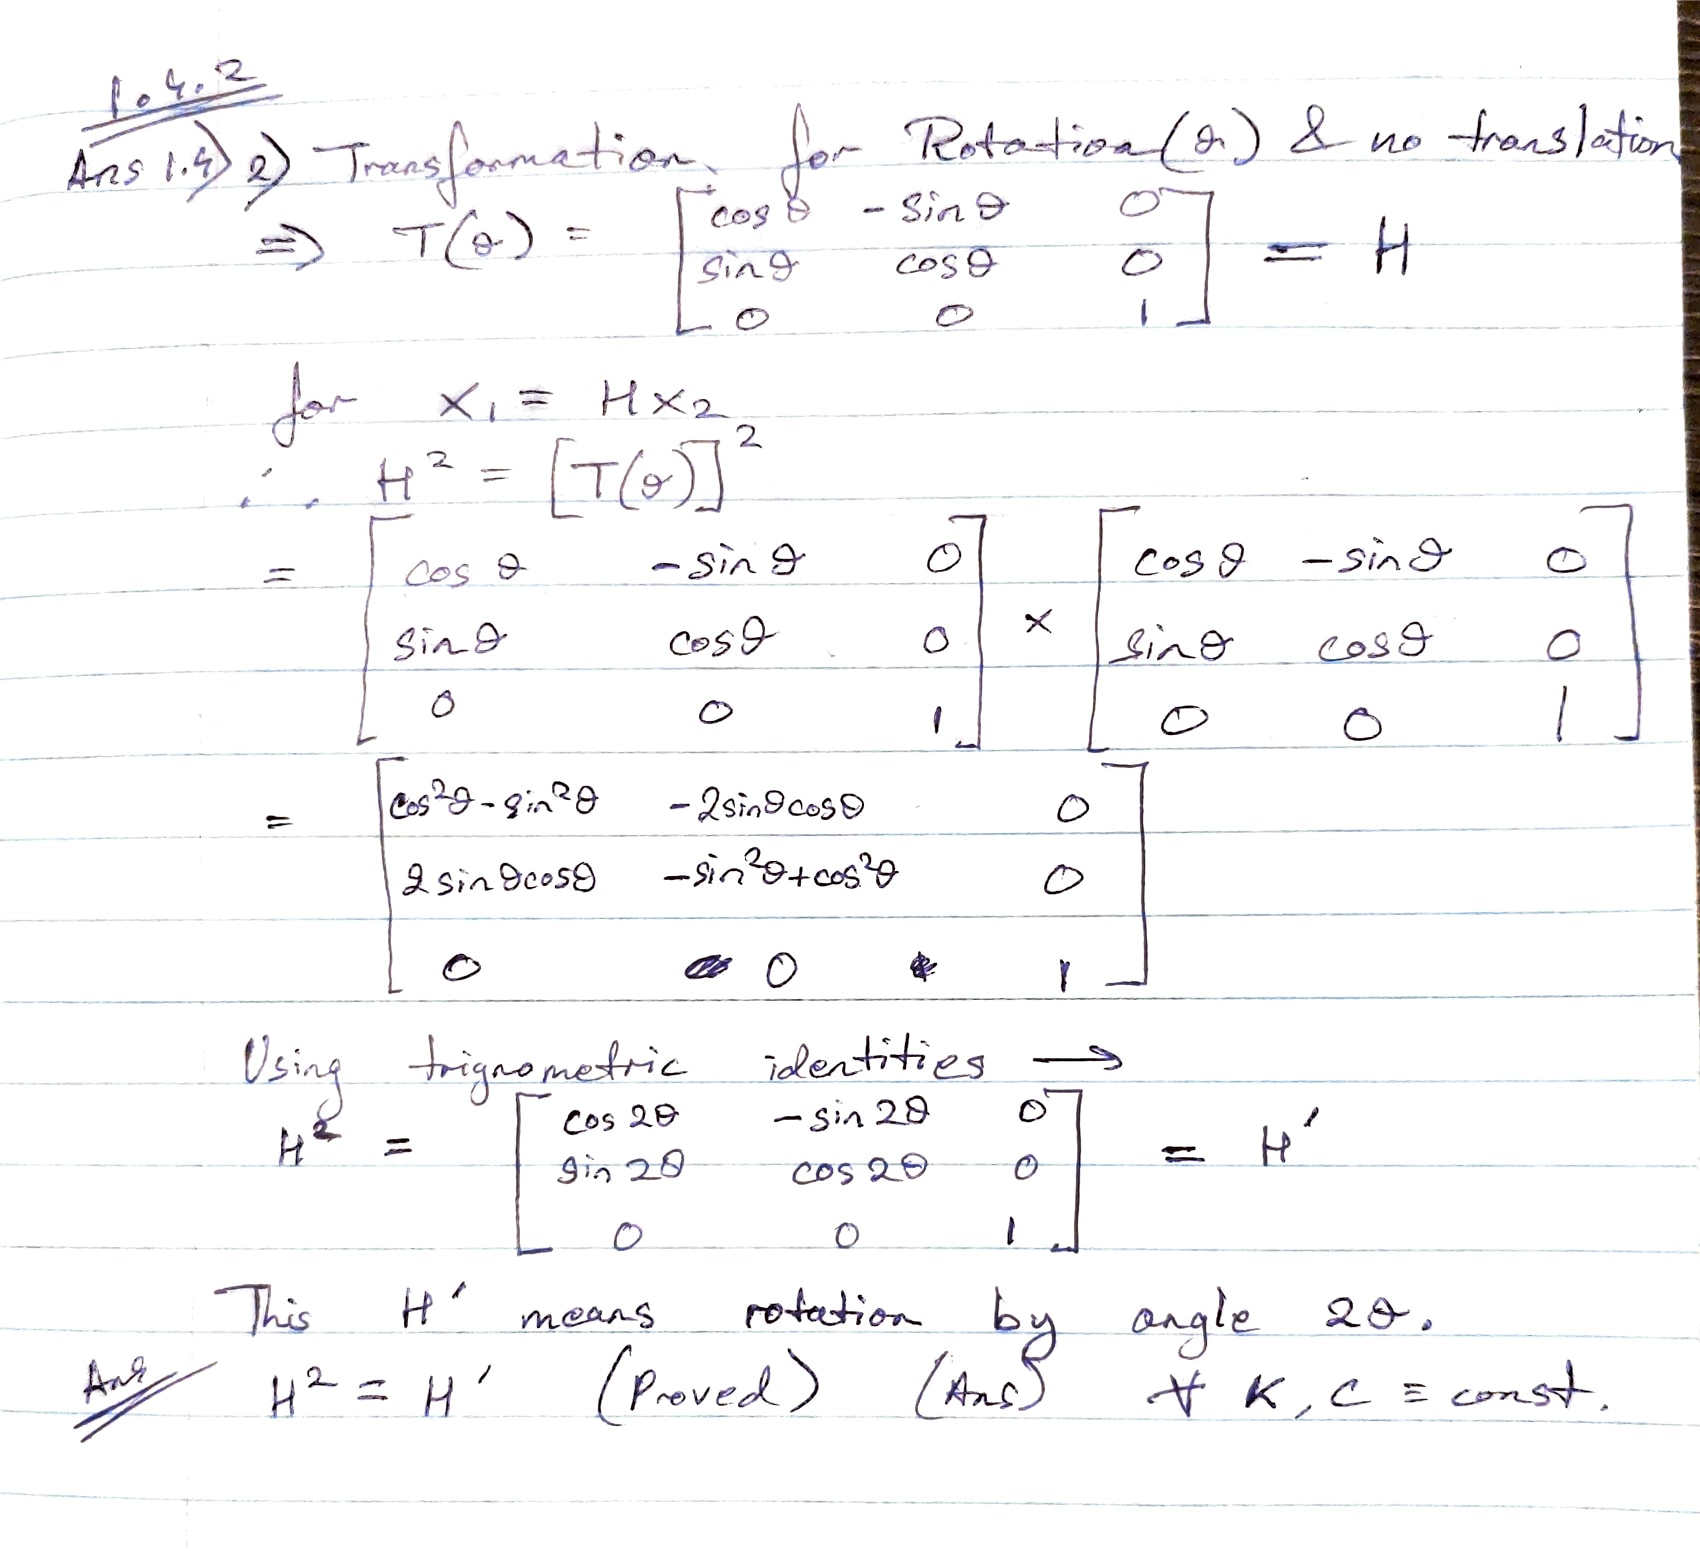 1.4.2
Ans 1.4) 2) Transformation for Rotation (θ) & no translation
⇒ T(θ) = [cosθ -sinθ 0
sinθ cosθ 0
0 0 1] = H
for x₁ = Hx₂
∴ H² = [T(θ)]²
= [cosθ -sinθ 0 ] × [cosθ -sinθ 0
sinθ cosθ 0 sinθ cosθ 0
0 0 1 0 0 1]
= [cos²θ-sin²θ -2sinθcosθ 0
2sinθcosθ -sin²θ+cos²θ 0
0 0 1]
Using trignometric identities →
H² = [cos2θ -sin2θ 0
sin2θ cos2θ 0
0 0 1] = H'
This H' means rotation by angle 2θ.
Ans H² = H' (Proved) (Ans) ∀ K, C ≡ const.